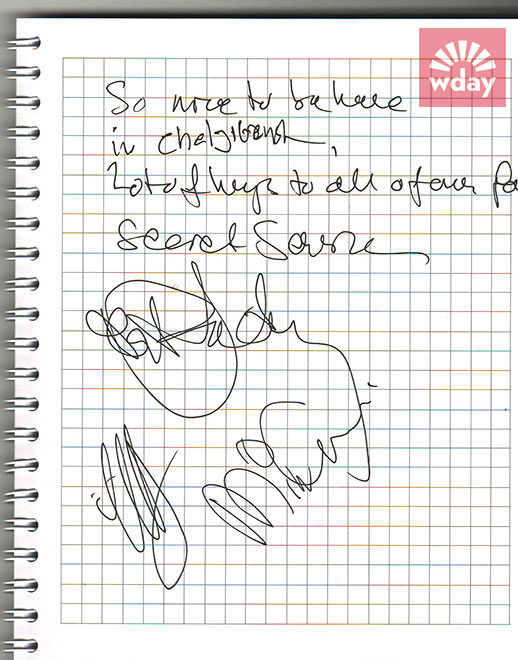 wday
So nice to be here
in Chelyabinsk,
Lots of hugs to all of our fa
Secret Service